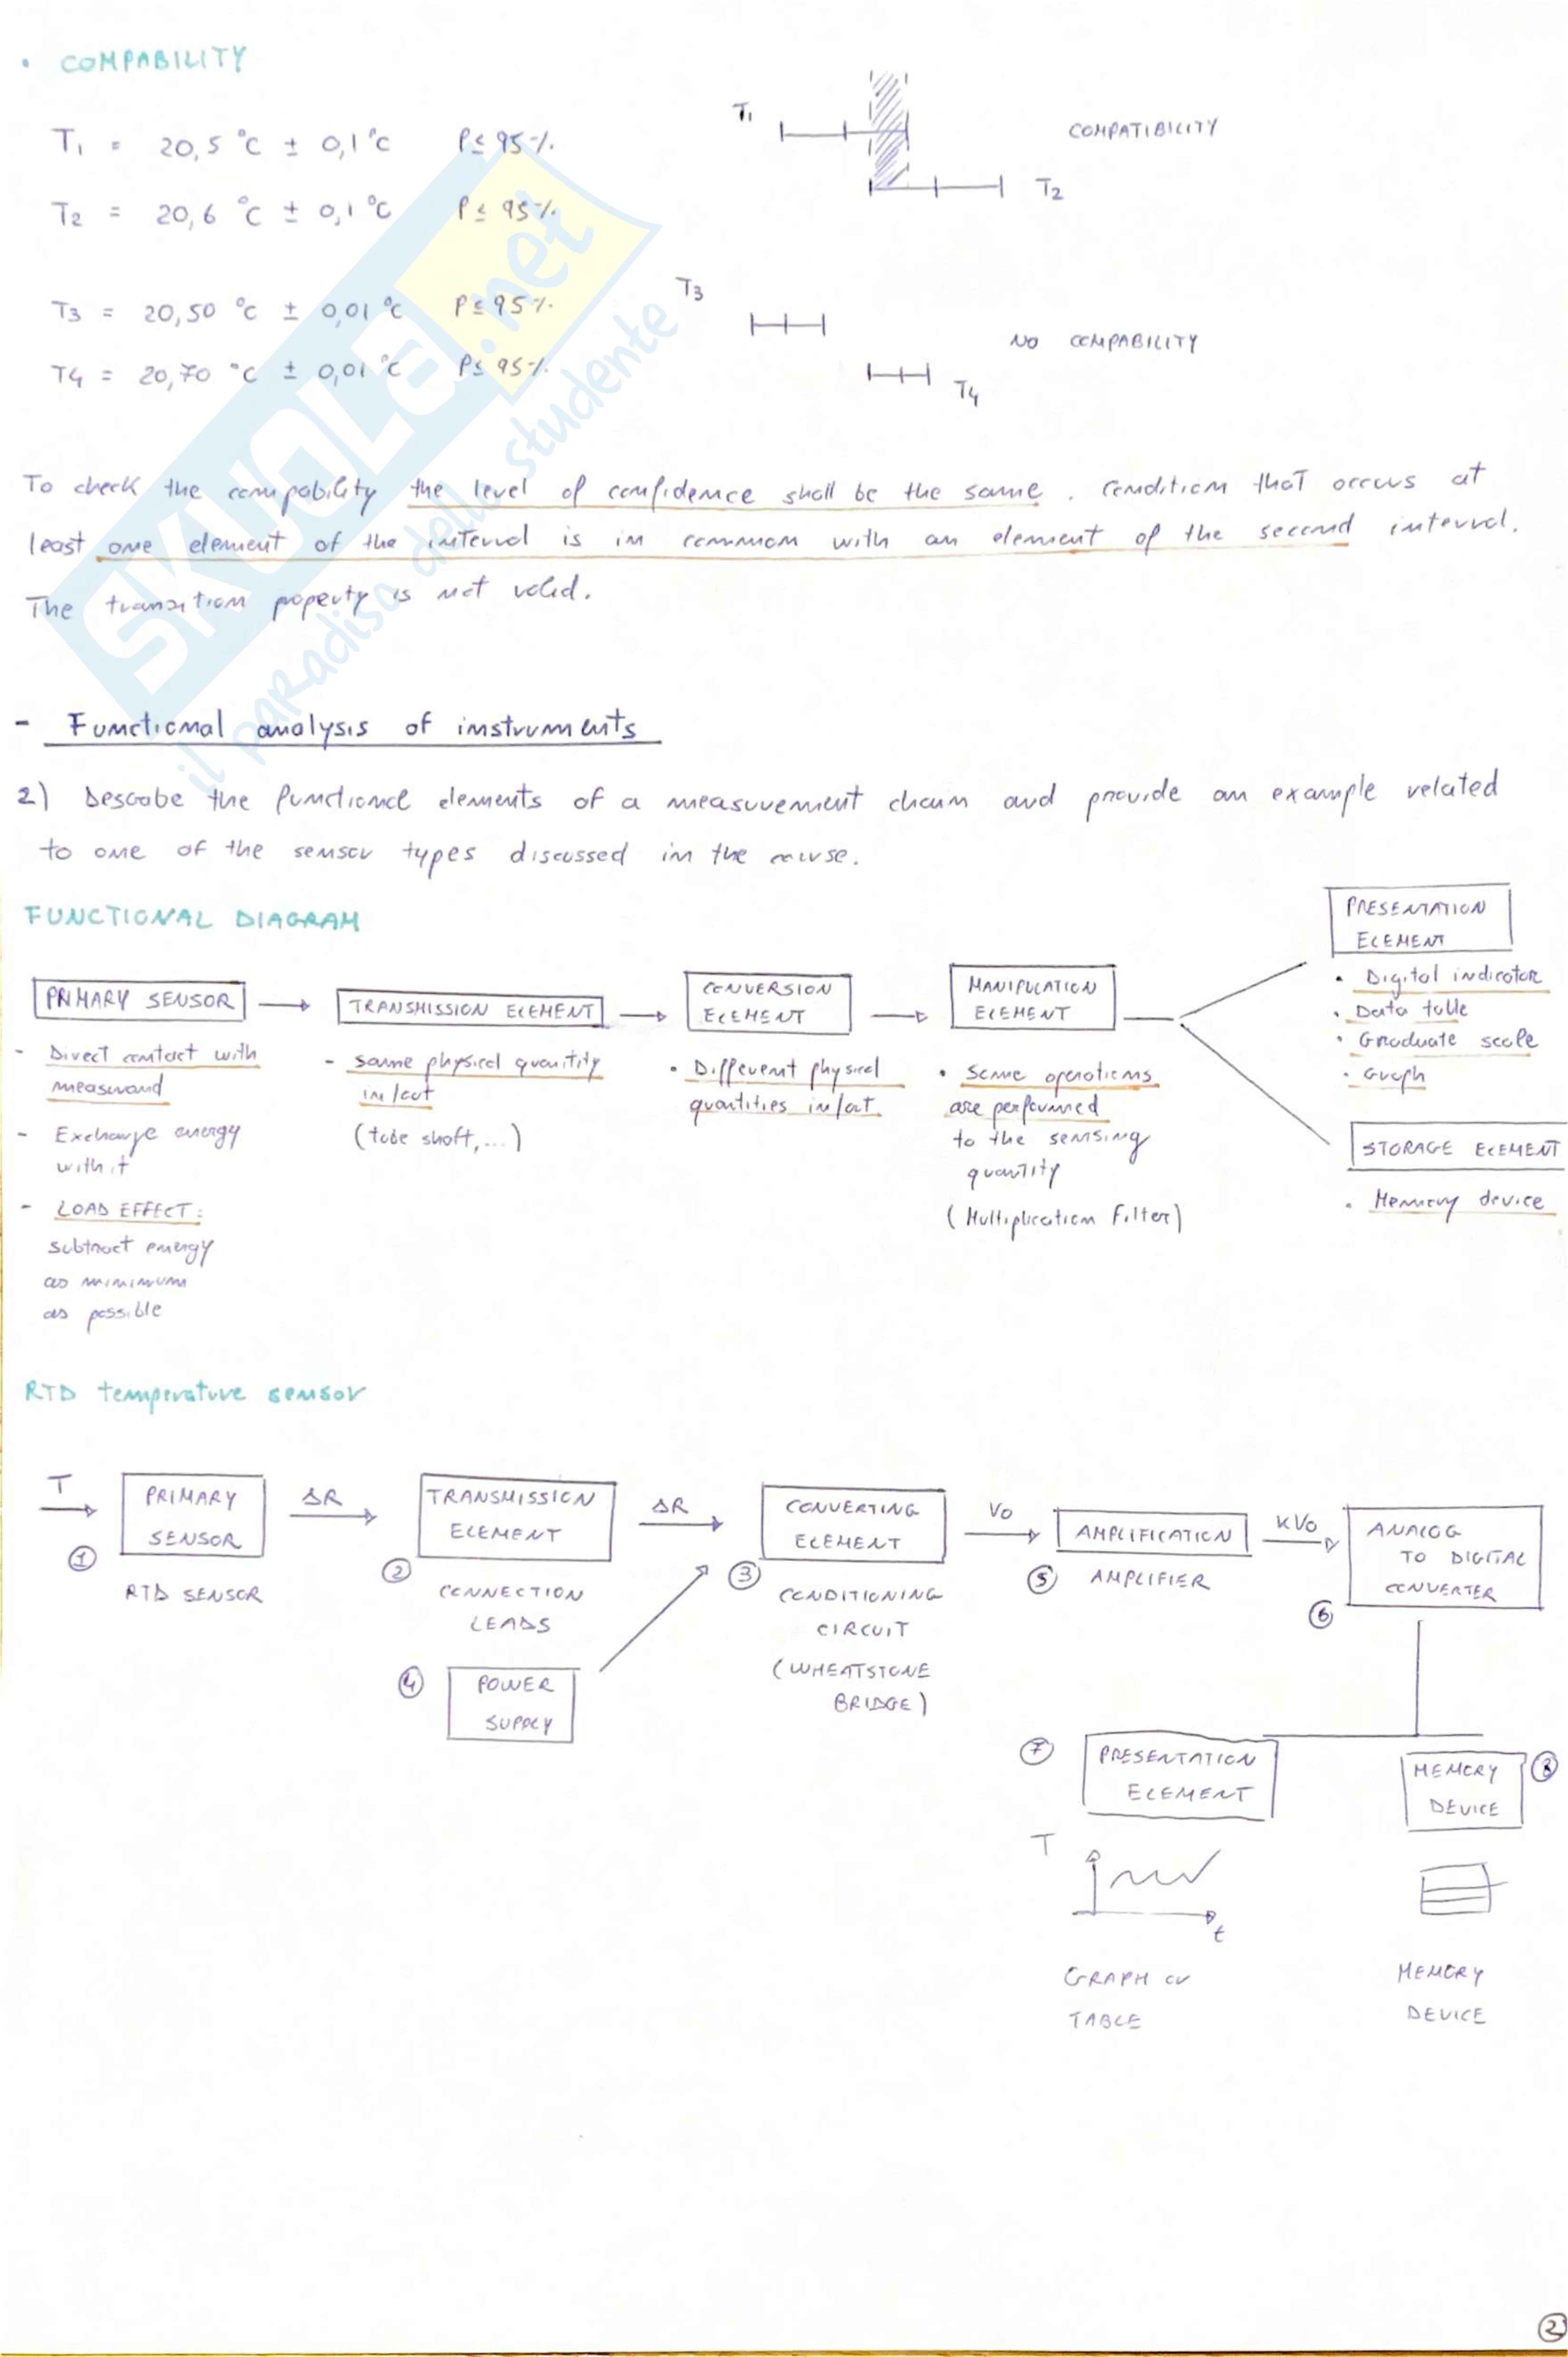 • COMPABILITY
T1 = 20,5 °C ± 0,1 °C P≤ 95 %
T2 = 20,6 °C ± 0,1 °C P≤ 95 %
T1
COMPATIBILITY
T2
T3 = 20,50 °C ± 0,01 °C P≤ 95 %
T4 = 20,70 °C ± 0,01 °C P≤ 95 %
T3
NO COMPABILITY
T4
To check the compability the level of confidence shall be the same. Condition that occurs at
least one element of the interval is in common with an element of the second interval.
The transition property is not valid.
SKUOLA.net
il paradiso dello studente
- Functional analysis of instruments
2) Describe the functional elements of a measurement chain and provide an example related
to one of the sensor types discussed in the course.
FUNCTIONAL DIAGRAM
PRIMARY SENSOR
- Direct contact with
measurand
- Exchange energy
with it
- LOAD EFFECT:
subtract energy
as minimum
as possible
TRANSMISSION ELEMENT
- same physical quantity
in/out
(tube shaft, ...)
CONVERSION
ELEMENT
• Different physical
quantities in/out
MANIPULATION
ELEMENT
• Some operations
are performed
to the sensing
quantity
(Multiplication Filter)
PRESENTATION
ELEMENT
• Digital indicator
• Data table
• Graduate scale
• Graph
STORAGE ELEMENT
• Memory device
RTD temperature sensor
T
PRIMARY
SENSOR
1
RTD SENSOR
ΔR
TRANSMISSION
ELEMENT
2
CONNECTION
LEADS
4
POWER
SUPPLY
ΔR
CONVERTING
ELEMENT
3
CONDITIONING
CIRCUIT
(WHEATSTONE
BRIDGE)
Vo
AMPLIFICATION
5
AMPLIFIER
KVo
ANALOG
TO DIGITAL
CONVERTER
6
7
PRESENTATION
ELEMENT
T
t
GRAPH or
TABLE
MEMORY
DEVICE
8
MEMORY
DEVICE
2